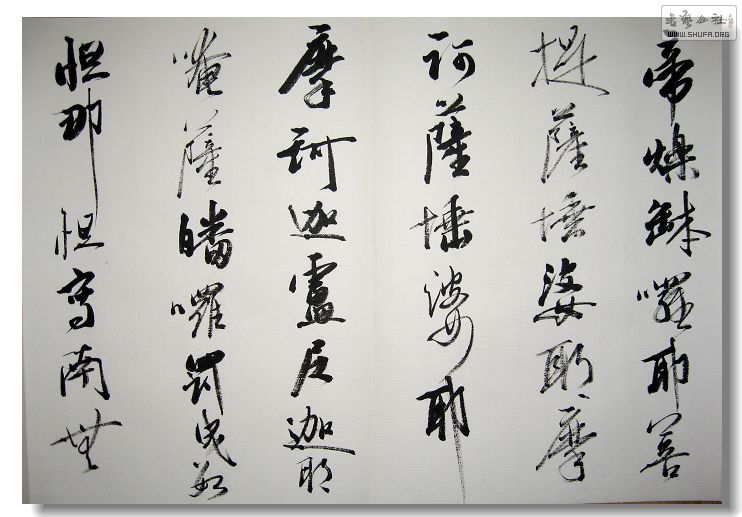 帝爍缽囉耶菩
提薩埵婆耶摩
訶薩埵婆耶
摩訶迦盧尼迦耶
唵薩皤囉罰曳數
怛那怛寫南無
书艺公社
WWW.SHUFA.ORG